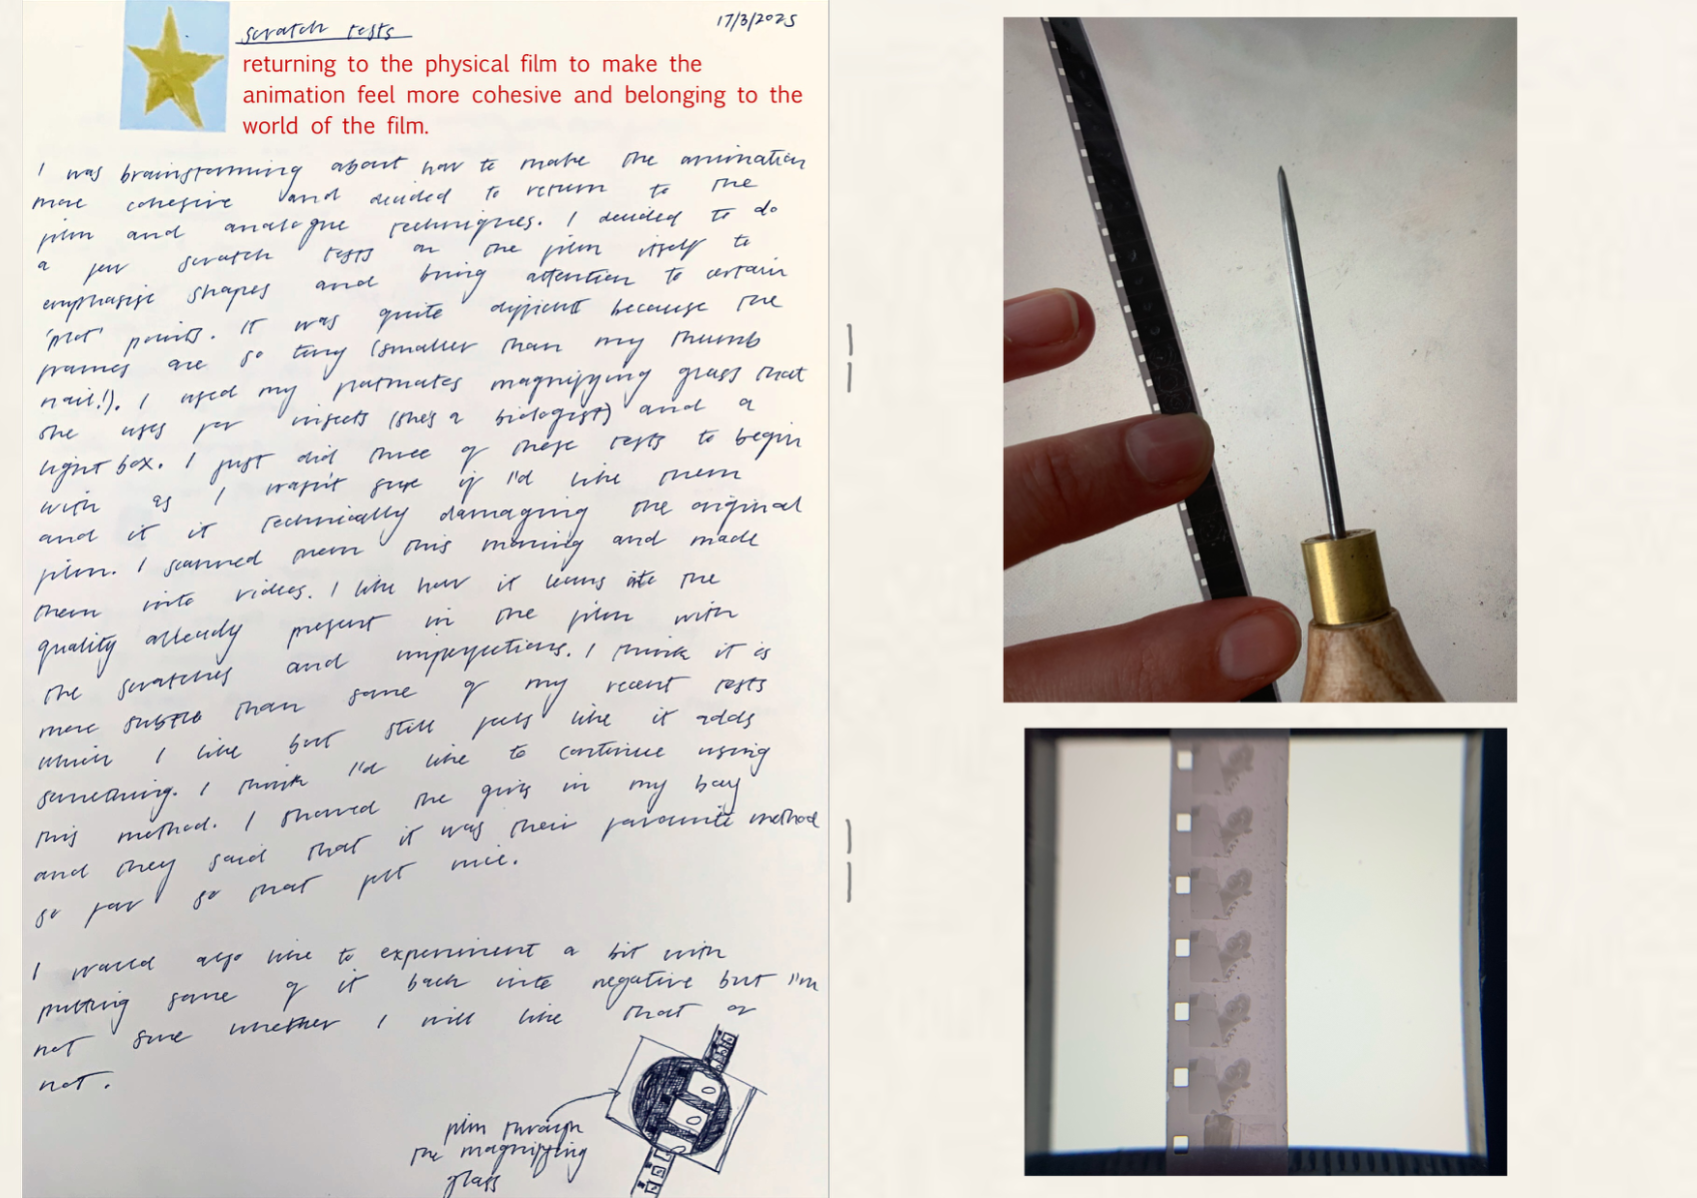 scratch tests
17/3/2025
returning to the physical film to make the
animation feel more cohesive and belonging to the
world of the film.
I was brainstorming about how to make the animation
more cohesive and decided to return to the
film and analogue techniques. I decided to do
a few scratch tests on the film itself to
emphasise shapes and bring attention to certain
'plot' points. It was quite difficult because the
frames are so tiny (smaller than my thumb
nail!). I used my flatmates magnifying glass that
she uses for insects (she's a biologist) and a
light box. I just did three of these tests to begin
with as I wasn't sure if I'd like them
and it it technically damaging the original
film. I scanned them this morning and made
them into videos. I like how it leans into the
quality already present in the film with
the scratches and imperfections. I think it is
more subtle than some of my recent tests
which I like but still feels like it adds
something. I think I'd like to continue using
this method. I showed the girls in my bay
and they said that it was their favourite method
so far so that felt nice.
I would also like to experiment a bit with
putting some of it back into negative but I'm
not sure whether I will like that or
not.
film through
the magnifying
glass